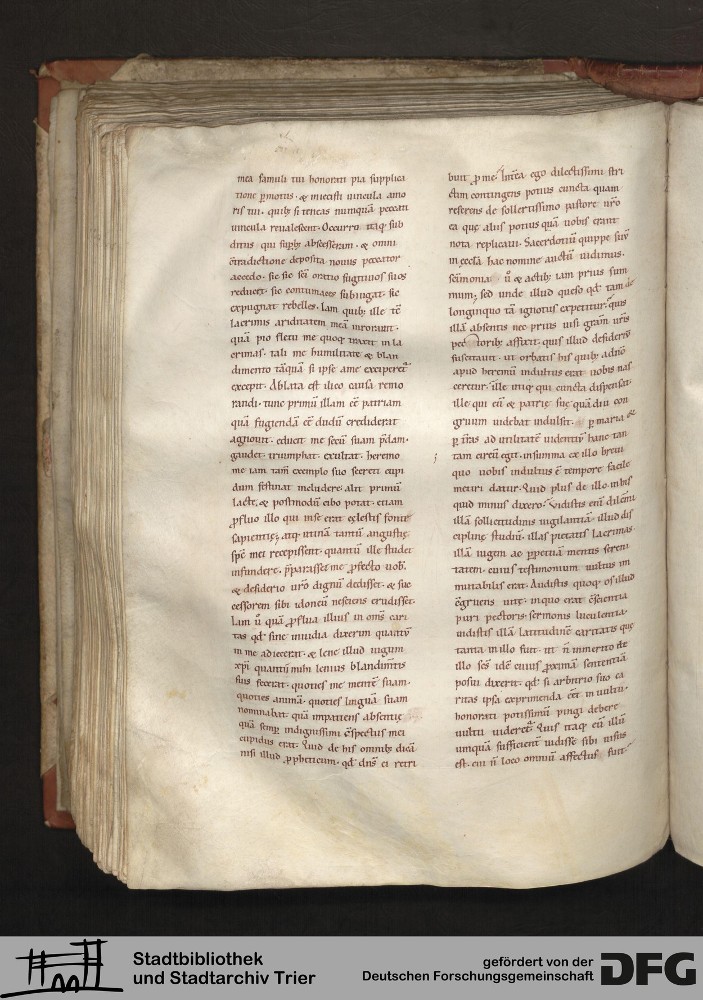 mea famuli tui honorati pia supplica
tione p̄motus · & iniecisti uincula amo
ris tui · quib; si teneas nunquā peccati
uincula reualescent · Occurro itaq; sub
ditus qui sup̄b; abscesseram · & omni
c̄tradictione deposita nouus peccator
accedo · sic sic sc̄i oratio fugitiuos suos
reducit · sic contumaces subiugat · sic
expugnat rebelles · Iam quib; ille tc̄
lacrimis ariditatem meā inrorauit ·
quā pio fletu me quoq; traxit in la
crimas · tali me humilitate & blan
dimento tāquā si ipse a me exciperet᷑
excepit · Ablata est ilico causa remo
randi · tunc primū illam eē patriam
quā fugiendā eē dudū crediderat
agnouit · educit me secū suam p̄dam ·
gaudet · triumphat · exultat · heremo
me iam tam̄ exemplo suo secreti cupi
dum festinat includere · alit primū
lacte · & postmodū cibo potat · etiam
p̄fluo illo qui in se erat cęlestis fonte
sapientię · atq; utinā tantū angustię
sp̄c mei recepissent quantū ille studet
infundere · p̄parasset me p̄fecto uob̄
& desiderio ur̄o dignū dedisset · & suc
cessorem sibi idoneū nesciens erudisset ·
Iam ū quā p̄flua illius in om̄s cari
tas qd̄ sine inuidia dixerim quantū
in me adiecerat · & lene illud iugum
xp̄i quantū mihi lenius blandim̄tis
suis fecerat · quoties me mentē suam ·
quoties animā · quoties linguā suam
nominabat quā impatiens absentię
quā semp̄ indignissimi c̄spectus mei
cupidus erat · Quid de his omnib; dicā
nisi illud p̄pheticum · qd̄ dn̄s ei retri
buit p̄ me · Int̄ea ego dilectissimi stri
ctim contingens potius cuncta quam
referens de sollertissimo pastore ur̄o
ea que aliis potius quā uobis erant
nota replicaui · Sacerdotiū quippe suū
in ęcclā hac nomine auctū uidimus ·
sērimonia ū & actib; iam prius sum
mum · sed unde illud queso qd̄ tam de
longinquo tā ignotus expetitur · quis
illā absentis nec prius uisi gratiā uris
pectorib; affixit · quis illud desideriū
suscitauit · ut orbatis his quib; adhuc
apud heremū indultus erat uobis nas
ceretur · ille utiq; qui cuncta dispensat ·
ille qui eū & patrię suę quādiu con
gruum uidebat indulsit · p̄ maria &
p̄ t̄ras ad utilitatē uidentiū hanc tan
tam eirēū egit · in summa ex illo breui
quo uobis indultus ē tempore facile
metiri datur · Quid plus de illo uobis
quid minus dixero · Vidistis enī dilc̄mi
illā sollicitudinis uigilantiā · illud dis
ciplinę studiū · illas pietatis lacrimas ·
illā iugem ac p̄petuā mentis sereni
tatem · cuius testimonium uultus im
mutabilis erat · Audistis quoq; os illud
c̄gruens uitę · in quo erat c̄scientia
puri pectoris sermonis luculentia ·
uidistis illā latitudinē caritatis quę
tanta in illo fuit · ut n̄ inmerito de
illo sc̄s idē cuius p̄ximā sententiā
posui dixerit · qd̄ si arbitrio suo ca
ritas ipsa exprimenda eēt in uultu ·
honorati potissimū pingi debere
uultu uideret᷑ · Quis itaq; eū illū
unquā sufficient uidisse sibi uisus
est · cui n̄ loco omniū affectuū fuit ·
Stadtbibliothek
und Stadtarchiv Trier
gefördert von der
Deutschen Forschungsgemeinschaft
DFG